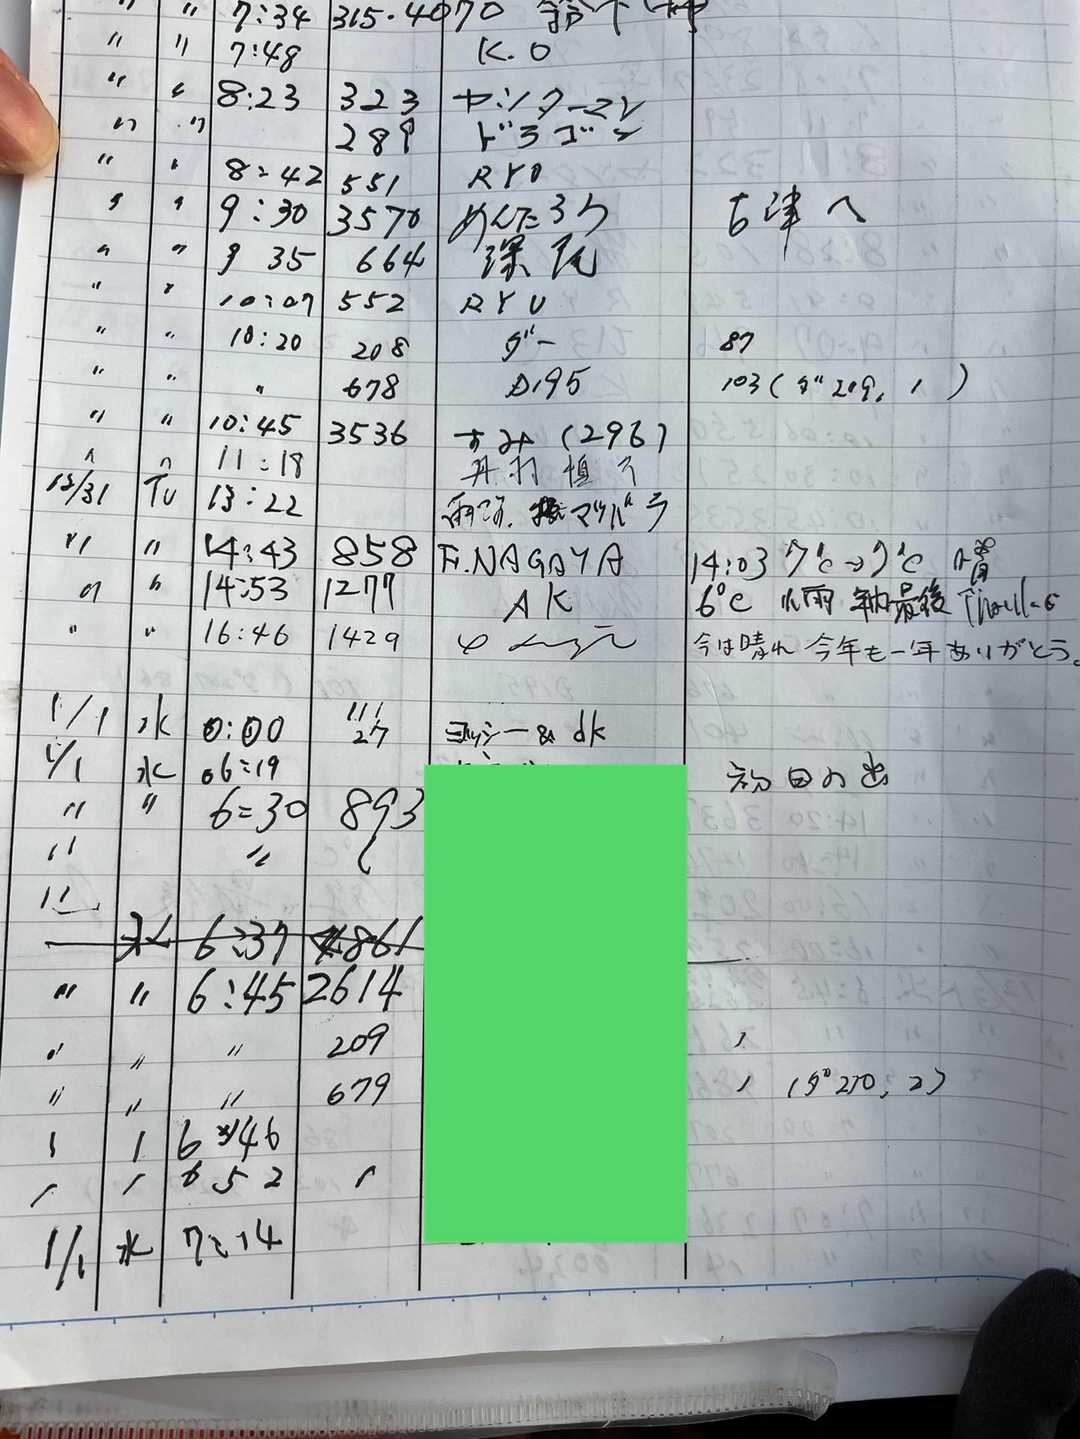 〃 〃 7:34 315.4070
〃 〃 7:48 K.O
〃 〃 8:23 323 ヤンクーマン
〃 〃 289 ドラゴン
〃 〃 8:42 551 RYO
〃 〃 9:30 3570 めんたろう 古津へ
〃 〃 9 35 664 深尾
〃 〃 10:07 552 RYU
〃 〃 10:20 208 ダー 87
〃 〃 〃 678 D.195 103(ダ209, 1)
〃 〃 10:45 3536 すみ(296)
〃 〃 11:18
12/31 TU 13:22
〃 〃 14:43 858 F.NAGAYA 14:03 7℃→9℃
〃 〃 14:53 1277 AK 6℃ 小雨 年内最後
〃 〃 16:46 1429 今は晴れ 今年も一年ありがとう。
1/1 水 0:00 111
27 ヨッシー& dk
1/1 水 06:19 初日の出
〃 〃 6:30 893
〃 〃
〃
水 6:37 1861
〃 〃 6:45 2614
〃 〃 〃 209
〃 〃 〃 679 (ダ210, 2)
6 46
6 52
1/1 水 7:14